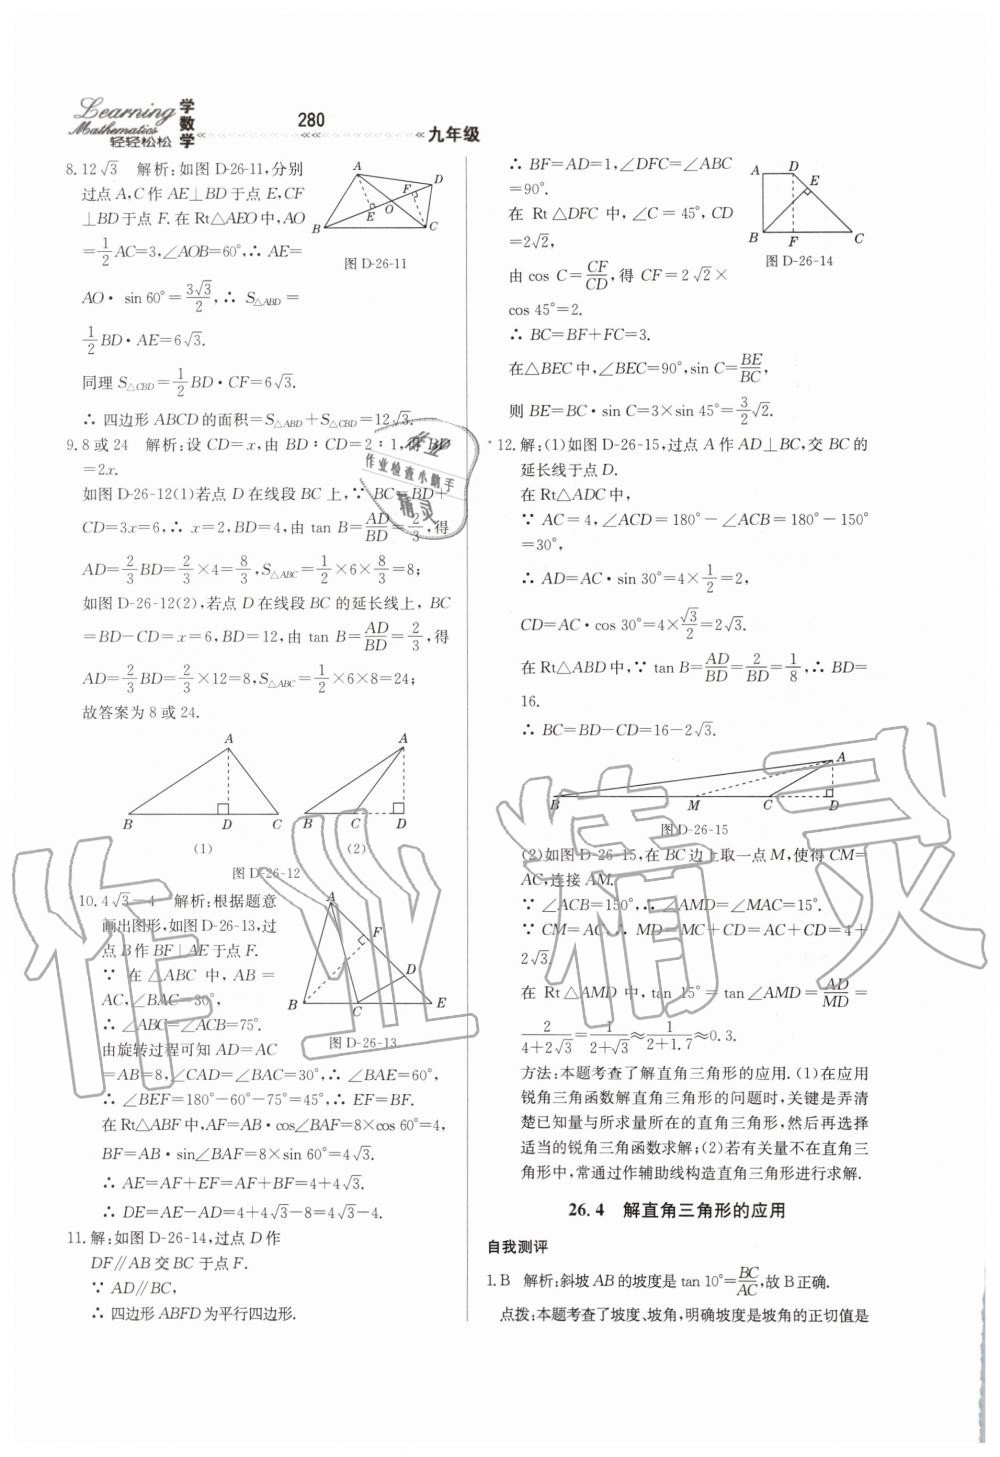 Learning
Mathematics
轻轻松松
学数学
280
九年级
8.12√3 解析:如图 D-26-11,分别
过点 A,C 作 AE⊥BD 于点 E,CF
⊥BD 于点 F. 在 Rt△AEO 中,AO
=1/2 AC=3,∠AOB=60°,∴ AE=
AO· sin 60°=3√3/2,∴ S△ABD=
1/2 BD·AE=6√3.
同理 S△CBD=1/2 BD·CF=6√3.
∴ 四边形 ABCD 的面积=S△ABD+S△CBD=12√3.
A
D
F
E
O
B
C
图 D-26-11
9.8 或 24 解析:设 CD=x,由 BD∶CD=2∶1,得 BD
=2x.
如图 D-26-12(1)若点 D 在线段 BC 上,∵ BC=BD+
CD=3x=6,∴ x=2,BD=4,由 tan B=AD/BD=2/3,得
AD=2/3 BD=2/3×4=8/3,S△ABC=1/2×6×8/3=8;
如图 D-26-12(2),若点 D 在线段 BC 的延长线上, BC
=BD-CD=x=6,BD=12,由 tan B=AD/BD=2/3,得
AD=2/3 BD=2/3×12=8,S△ABC=1/2×6×8=24;
故答案为 8 或 24.
A A
B D C B C D
(1) (2)
图 D-26-12
10.4√3-4 解析:根据题意
画出图形,如图 D-26-13,过
点 B 作 BF⊥AE 于点 F.
∵ 在 △ABC 中, AB =
AC,∠BAC=30°,
∴ ∠ABC=∠ACB=75°.
由旋转过程可知 AD=AC
=AB=8,∠CAD=∠BAC=30°,∴ ∠BAE=60°,
∴ ∠BEF=180°-60°-75°=45°,∴ EF=BF.
在 Rt△ABF 中,AF=AB·cos∠BAF=8×cos 60°=4,
BF=AB·sin∠BAF=8×sin 60°=4√3.
∴ AE=AF+EF=AF+BF=4+4√3.
∴ DE=AE-AD=4+4√3-8=4√3-4.
A
F
D
B
C
E
图 D-26-13
11.解:如图 D-26-14,过点 D 作
DF∥AB 交 BC 于点 F.
∵ AD∥BC,
∴ 四边形 ABFD 为平行四边形.
∴ BF=AD=1,∠DFC=∠ABC
=90°.
在 Rt△DFC 中,∠C = 45°, CD
=2√2,
由 cos C=CF/CD,得 CF=2√2×
cos 45°=2.
∴ BC=BF+FC=3.
在△BEC 中,∠BEC=90°,sin C=BE/BC,
则 BE=BC·sin C=3×sin 45°=3/2√2.
A D
E
B F C
图 D-26-14
12.解:(1)如图 D-26-15,过点 A 作 AD⊥BC,交 BC 的
延长线于点 D.
在 Rt△ADC 中,
∵ AC=4,∠ACD=180°-∠ACB=180°-150°
=30°,
∴ AD=AC·sin 30°=4×1/2=2,
CD=AC·cos 30°=4×√3/2=2√3.
在 Rt△ABD 中,∵ tan B=AD/BD=2/BD=1/8,∴ BD=
16.
∴ BC=BD-CD=16-2√3.
A
B M C D
图 D-26-15
(2)如图 D-26-15,在 BC 边上取一点 M,使得 CM=
AC,连接 AM.
∵ ∠ACB=150°,∴ ∠AMD=∠MAC=15°.
∵ CM=AC,∴ MD=MC+CD=AC+CD=4+
2√3.
在 Rt△AMD 中,tan 15°=tan∠AMD=AD/MD=
2/(4+2√3)=1/(2+√3)≈1/(2+1.7)≈0.3.
方法:本题考查了解直角三角形的应用.(1)在应用
锐角三角函数解直角三角形的问题时,关键是弄清
楚已知量与所求量所在的直角三角形,然后再选择
适当的锐角三角函数求解;(2)若有关量不在直角三
角形中,常通过作辅助线构造直角三角形进行求解.
26.4 解直角三角形的应用
自我测评
1.B 解析:斜坡 AB 的坡度是 tan 10°=BC/AC,故 B 正确.
点拨:本题考查了坡度、坡角,明确坡度是坡角的正切值是
作业
作业检查小助手
精灵
作业精灵